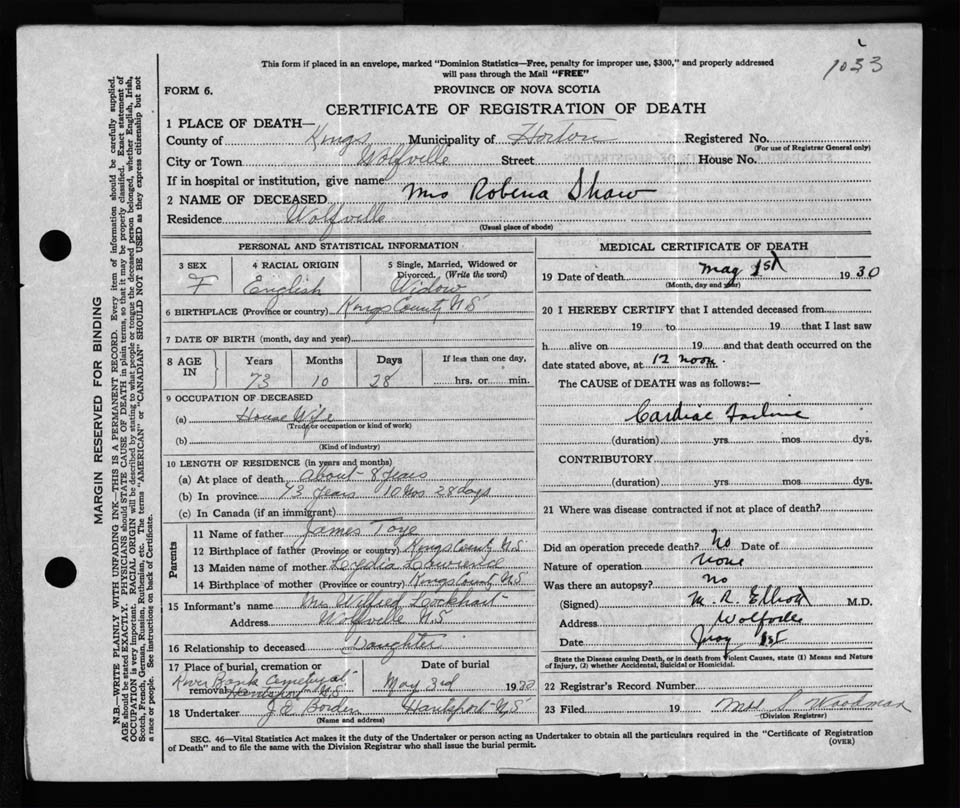 1033
This form if placed in an envelope, marked "Dominion Statistics—Free, penalty for improper use, $300," and properly addressed
will pass through the Mail "FREE"
FORM 6.
PROVINCE OF NOVA SCOTIA
CERTIFICATE OF REGISTRATION OF DEATH
1 PLACE OF DEATH—
County of Kings Municipality of Horton Registered No.
(For use of Registrar General only)
City or Town Wolfville Street House No.
If in hospital or institution, give name
2 NAME OF DECEASED Mrs Robena Shaw
Residence Wolfville
(Usual place of abode)
PERSONAL AND STATISTICAL INFORMATION
3 SEX F
4 RACIAL ORIGIN English
5 Single, Married, Widowed or Divorced. (Write the word) Widow
6 BIRTHPLACE (Province or country) Kings County N.S
7 DATE OF BIRTH (month, day and year)
8 AGE IN Years Months Days If less than one day,
73 10 28 hrs. or min.
9 OCCUPATION OF DECEASED
(a) House Wife
(Trade or occupation or kind of work)
(b)
(Kind of industry)
10 LENGTH OF RESIDENCE (in years and months)
(a) At place of death about 8 years
(b) In province 73 years 10 mos 28 days
(c) In Canada (if an immigrant)
Parents
11 Name of father James Toye
12 Birthplace of father (Province or country) Kings County N.S
13 Maiden name of mother
14 Birthplace of mother (Province or country) Kings County N.S
15 Informant's name Mrs Wilfred Lockhart
Address Wolfville N.S
16 Relationship to deceased Daughter
17 Place of burial, cremation or removal Date of burial
River Bank Cemetery at
Hantsport N.S May 3rd 1930
18 Undertaker J.E Borden Hantsport N.S
(Name and address)
MEDICAL CERTIFICATE OF DEATH
19 Date of death May 1st 1930
(Month, day and year)
20 I HEREBY CERTIFY that I attended deceased from
19 to 19 that I last saw
h alive on 19 and that death occurred on the
date stated above, at 12 noon m.
The CAUSE OF DEATH was as follows:—
Cardiac Failure
(duration) yrs mos dys.
CONTRIBUTORY
(duration) yrs mos dys.
21 Where was disease contracted if not at place of death?
Did an operation precede death? No Date of
Nature of operation none
Was there an autopsy? no
(Signed) M. R. Elliott M.D.
Address Wolfville
Date May 1st
State the Disease causing Death, or in death from Violent Causes, state (1) Means and Nature
of Injury, (2) whether Accidental, Suicidal or Homicidal.
22 Registrar's Record Number
23 Filed 19 Woodman
(Division Registrar)
SEC. 46—Vital Statistics Act makes it the duty of the Undertaker or person acting as Undertaker to obtain all the particulars required in the "Certificate of Registration
of Death" and to file the same with the Division Registrar who shall issue the burial permit.
(OVER)
MARGIN RESERVED FOR BINDING
N.B.—WRITE PLAINLY WITH UNFADING INK—THIS IS A PERMANENT RECORD. Every item of information should be carefully supplied.
AGE should be stated EXACTLY. PHYSICIANS should STATE CAUSE OF DEATH in plain terms, so that it may be properly classified. Exact statement of
OCCUPATION is very important. RACIAL ORIGIN will be described by stating to what people or tongue the deceased person belonged, whether English, Irish,
Scotch, French, German, Russian, Ruthenian, etc. The terms "AMERICAN" or "CANADIAN" SHOULD NOT BE USED as they express citizenship but not
a race or people. See instructions on back of Certificate.